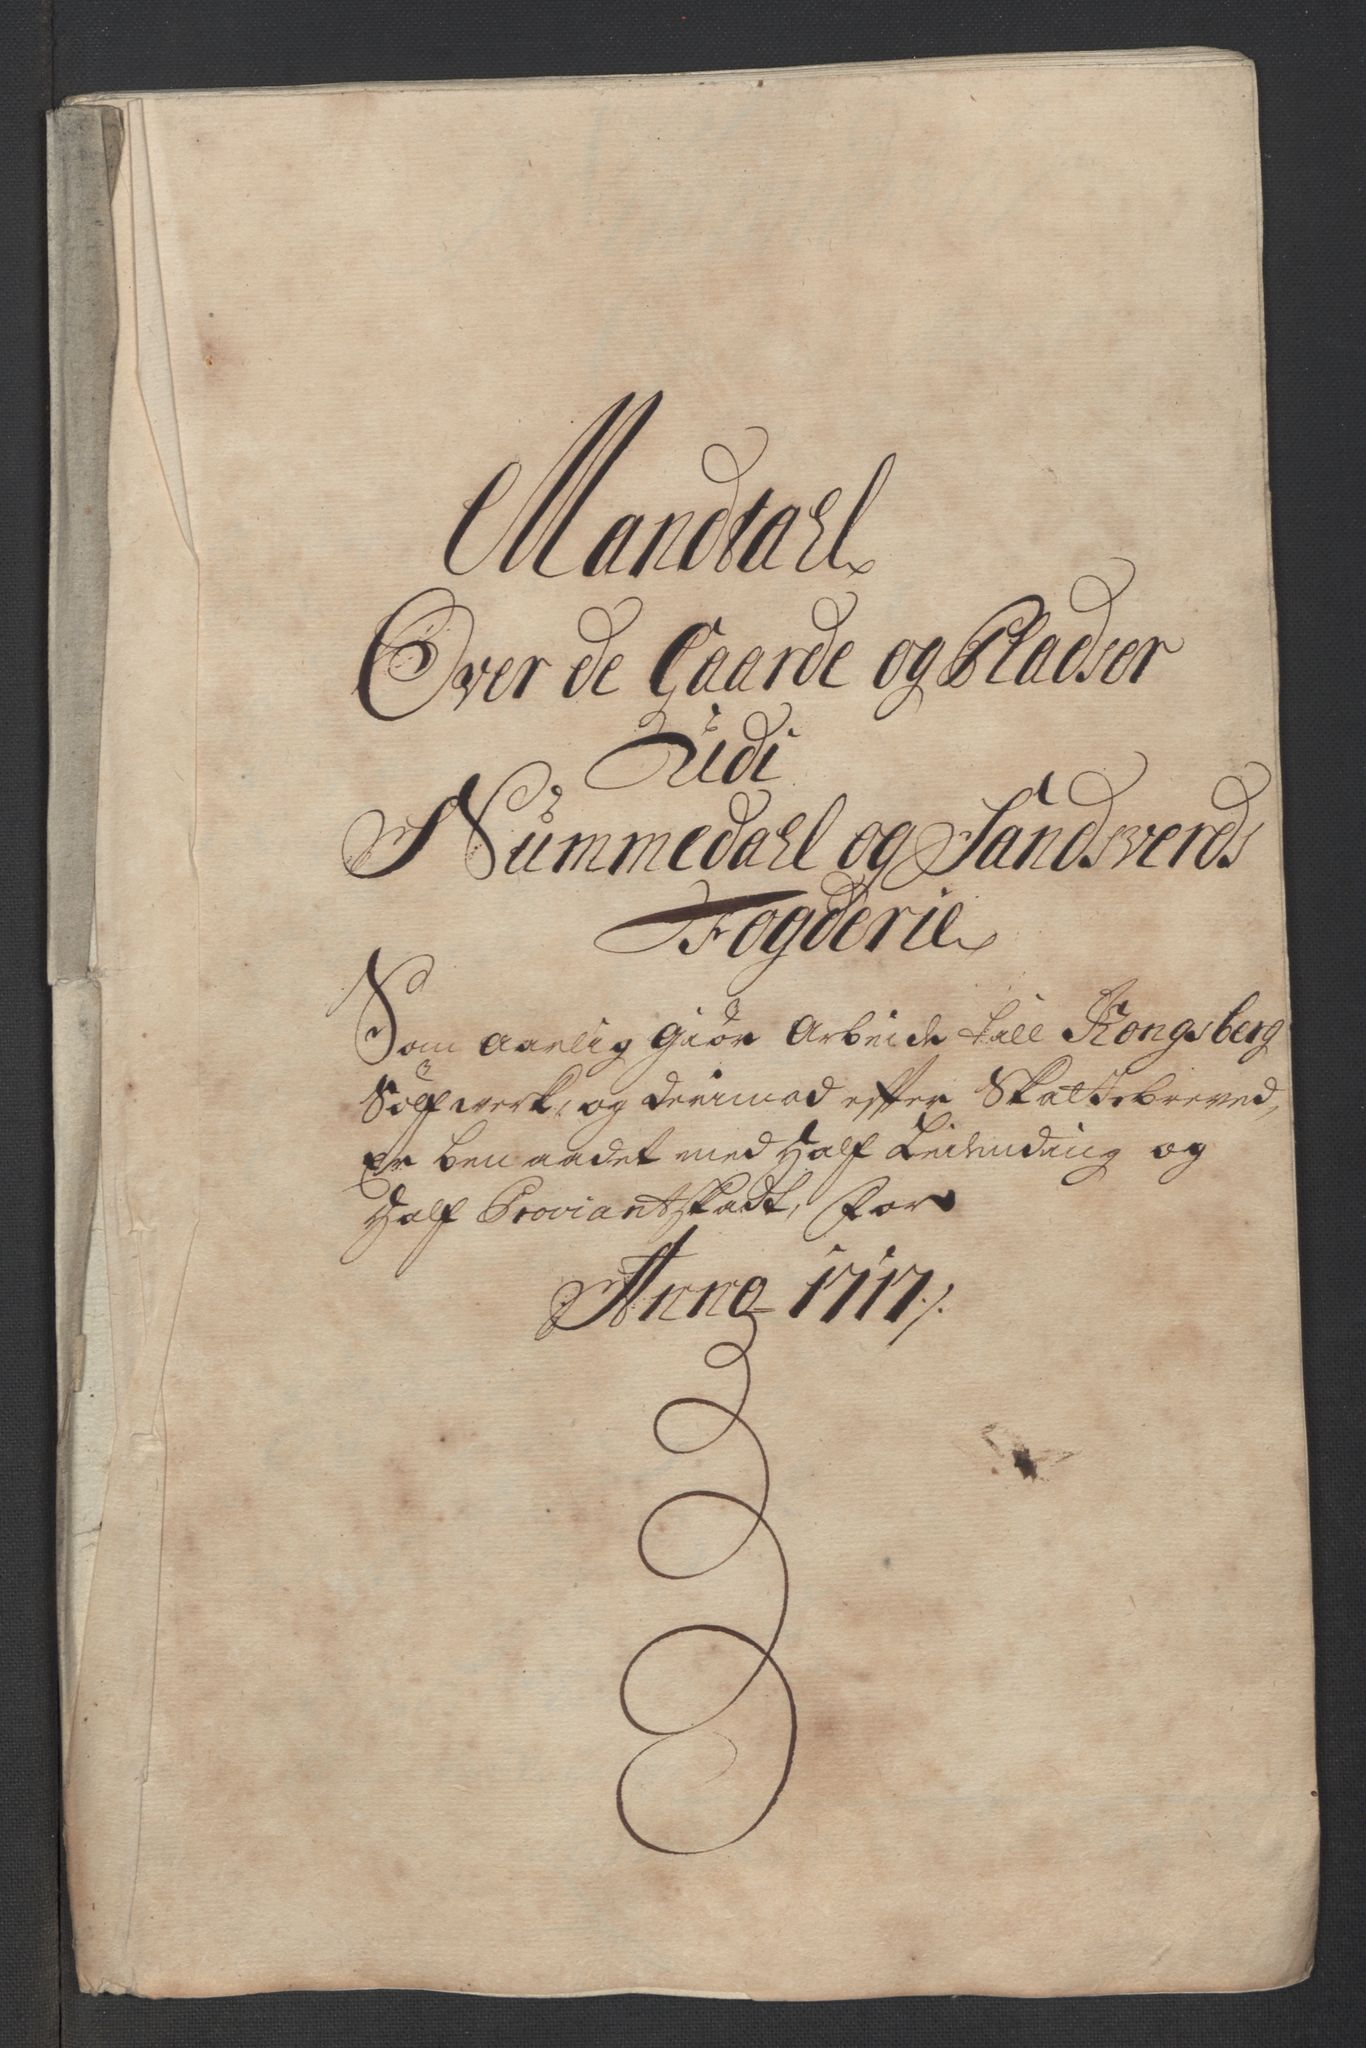 Mandtahl
Over de Gaarde og Pladser
Udi
Nummedahl og Sandsverds
Fogderie
Som aarlig giør Arbeide till Kongsberg
Sølfwerk, og derimod efter Skattebreved,
Er benaadet med Half Leilending og
Half Proviantskatt, for
Anno 1717.